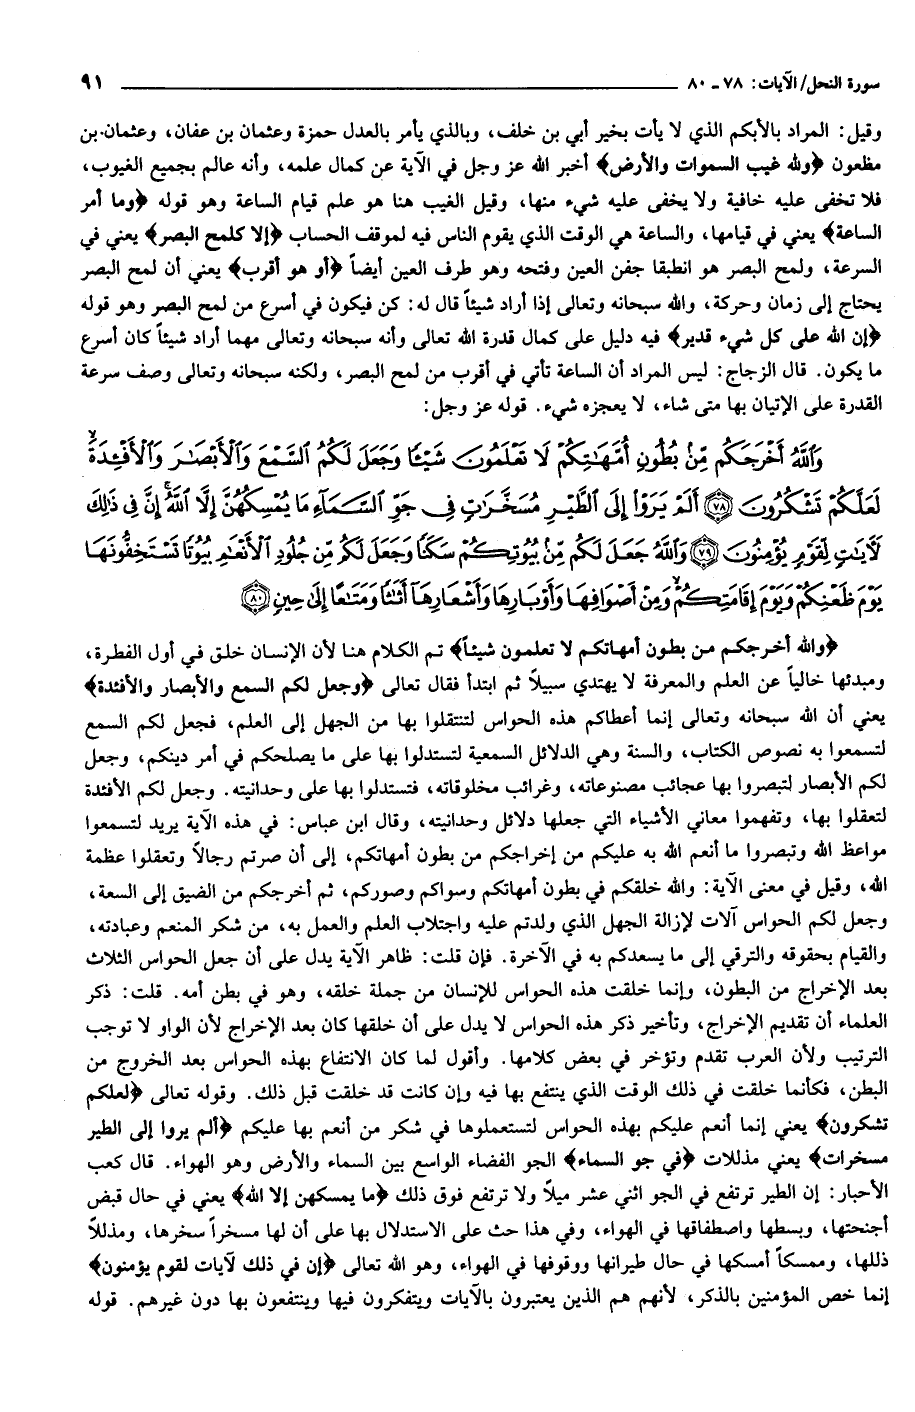 سورة النحل/الآيات: ٧٨ ـ ٨٠ ٩١
وقيل: المراد بالأبكم الذي لا يأت بخير أبي بن خلف، وبالذي يأمر بالعدل حمزة وعثمان بن عفان، وعثمان بن
مظعون ﴿ولله غيب السموات والأرض﴾ أخبر الله عز وجل في الآية عن كمال علمه، وأنه عالم بجميع الغيوب،
فلا تخفى عليه خافية ولا يخفى عليه شيء منها، وقيل الغيب هنا هو علم قيام الساعة وهو قوله ﴿وما أمر
الساعة﴾ يعني في قيامها، والساعة هي الوقت الذي يقوم الناس فيه لموقف الحساب ﴿إلا كلمح البصر﴾ يعني في
السرعة، ولمح البصر هو انطبقا جفن العين وفتحه وهو طرف العين أيضاً ﴿أو هو أقرب﴾ يعني أن لمح البصر
يحتاج إلى زمان وحركة، والله سبحانه وتعالى إذا أراد شيئاً قال له: كن فيكون في أسرع من لمح البصر وهو قوله
﴿إن الله على كل شيء قدير﴾ فيه دليل على كمال قدرة الله تعالى وأنه سبحانه وتعالى مهما أراد شيئاً كان أسرع
ما يكون. قال الزجاج: ليس المراد أن الساعة تأتي في أقرب من لمح البصر، ولكنه سبحانه وتعالى وصف سرعة
القدرة على الإتيان بها متى شاء، لا يعجزه شيء. قوله عز وجل:
وَٱللَّهُ أَخْرَجَكُم مِّنۢ بُطُونِ أُمَّهَٰتِكُمْ لَا تَعْلَمُونَ شَيْـًٔا وَجَعَلَ لَكُمُ ٱلسَّمْعَ وَٱلْأَبْصَٰرَ وَٱلْأَفْـِٔدَةَ ۙ
لَعَلَّكُمْ تَشْكُرُونَ ﴿٧٨﴾ أَلَمْ يَرَوْا۟ إِلَى ٱلطَّيْرِ مُسَخَّرَٰتٍ فِى جَوِّ ٱلسَّمَآءِ مَا يُمْسِكُهُنَّ إِلَّا ٱللَّهُ ۗ إِنَّ فِى ذَٰلِكَ
لَأَيَٰتٍ لِّقَوْمٍ يُؤْمِنُونَ ﴿٧٩﴾ وَٱللَّهُ جَعَلَ لَكُم مِّنۢ بُيُوتِكُمْ سَكَنًا وَجَعَلَ لَكُم مِّن جُلُودِ ٱلْأَنْعَٰمِ بُيُوتًا تَسْتَخِفُّونَهَا
يَوْمَ ظَعْنِكُمْ وَيَوْمَ إِقَامَتِكُمْ ۙ وَمِنْ أَصْوَافِهَا وَأَوْبَارِهَا وَأَشْعَارِهَآ أَثَٰثًا وَمَتَٰعًا إِلَىٰ حِينٍ ﴿٨٠﴾
﴿والله أخرجكم من بطون أمهاتكم لا تعلمون شيئاً﴾ تم الكلام هنا لأن الإنسان خلق في أول الفطرة،
ومبدئها خالياً عن العلم والمعرفة لا يهتدي سبيلاً ثم ابتدأ فقال تعالى ﴿وجعل لكم السمع والأبصار والأفئدة﴾
يعني أن الله سبحانه وتعالى إنما أعطاكم هذه الحواس لتنتقلوا بها من الجهل إلى العلم، فجعل لكم السمع
لتسمعوا به نصوص الكتاب، والسنة وهي الدلائل السمعية لتستدلوا بها على ما يصلحكم في أمر دينكم، وجعل
لكم الأبصار لتبصروا بها عجائب مصنوعاته، وغرائب مخلوقاته، فتستدلوا بها على وحدانيته. وجعل لكم الأفئدة
لتعقلوا بها، وتفهموا معاني الأشياء التي جعلها دلائل وحدانيته، وقال ابن عباس: في هذه الآية يريد لتسمعوا
مواعظ الله وتبصروا ما أنعم الله به عليكم من إخراجكم من بطون أمهاتكم، إلى أن صرتم رجالاً وتعقلوا عظمة
الله، وقيل في معنى الآية: والله خلقكم في بطون أمهاتكم وسواكم وصوركم، ثم أخرجكم من الضيق إلى السعة،
وجعل لكم الحواس آلات لإزالة الجهل الذي ولدتم عليه واجتلاب العلم والعمل به، من شكر المنعم وعبادته،
والقيام بحقوقه والترقي إلى ما يسعدكم به في الآخرة. فإن قلت: ظاهر الآية يدل على أن جعل الحواس الثلاث
بعد الإخراج من البطون، وإنما خلقت هذه الحواس للإنسان من جملة خلقه، وهو في بطن أمه. قلت: ذكر
العلماء أن تقديم الإخراج، وتأخير ذكر هذه الحواس لا يدل على أن خلقها كان بعد الإخراج لأن الواو لا توجب
الترتيب ولأن العرب تقدم وتؤخر في بعض كلامها. وأقول لما كان الانتفاع بهذه الحواس بعد الخروج من
البطن، فكأنما خلقت في ذلك الوقت الذي ينتفع بها فيه وإن كانت قد خلقت قبل ذلك. وقوله تعالى ﴿لعلكم
تشكرون﴾ يعني إنما أنعم عليكم بهذه الحواس لتستعملوها في شكر من أنعم بها عليكم ﴿ألم يروا إلى الطير
مسخرات﴾ يعني مذللات ﴿في جو السماء﴾ الجو الفضاء الواسع بين السماء والأرض وهو الهواء. قال كعب
الأحبار: إن الطير ترتفع في الجو اثني عشر ميلاً ولا ترتفع فوق ذلك ﴿ما يمسكهن إلا الله﴾ يعني في حال قبض
أجنحتها، وبسطها واصطفاقها في الهواء، وفي هذا حث على الاستدلال بها على أن لها مسخراً سخرها، ومذللاً
ذللها، وممسكاً أمسكها في حال طيرانها ووقوفها في الهواء، وهو الله تعالى ﴿إن في ذلك لآيات لقوم يؤمنون﴾
إنما خص المؤمنين بالذكر، لأنهم هم الذين يعتبرون بالآيات ويتفكرون فيها وينتفعون بها دون غيرهم. قوله